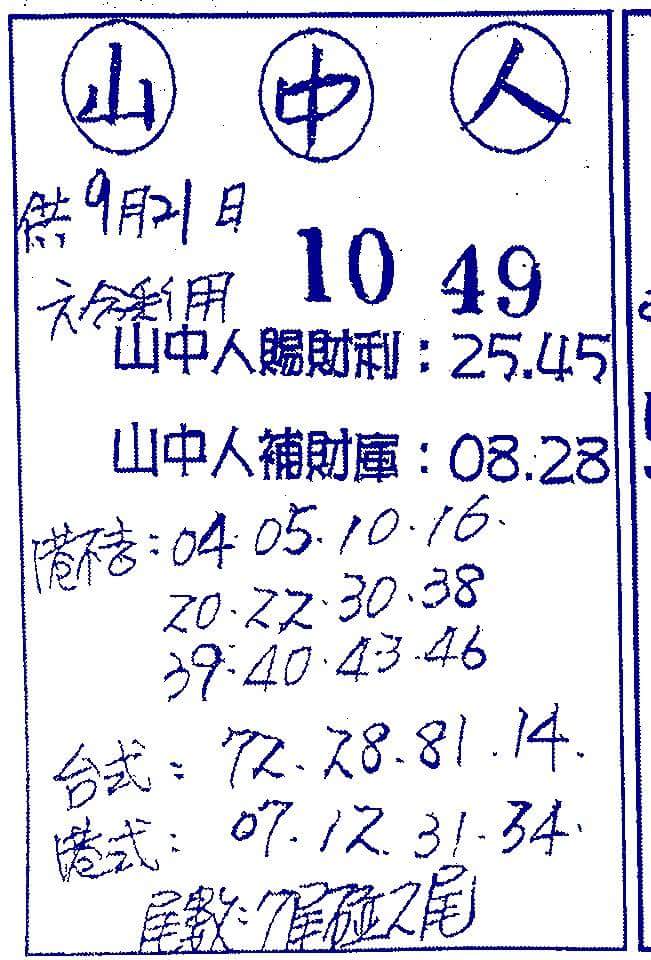 山中人
供9月21日
六合彩用
10 49
山中人賜財利：25.45
山中人補財庫：08.28
港不出：04.05.10.16.
20.22.30.38
39.40.43.46
台式：72.28.81.14.
港式：07.12.31.34.
尾數：7尾碰2尾